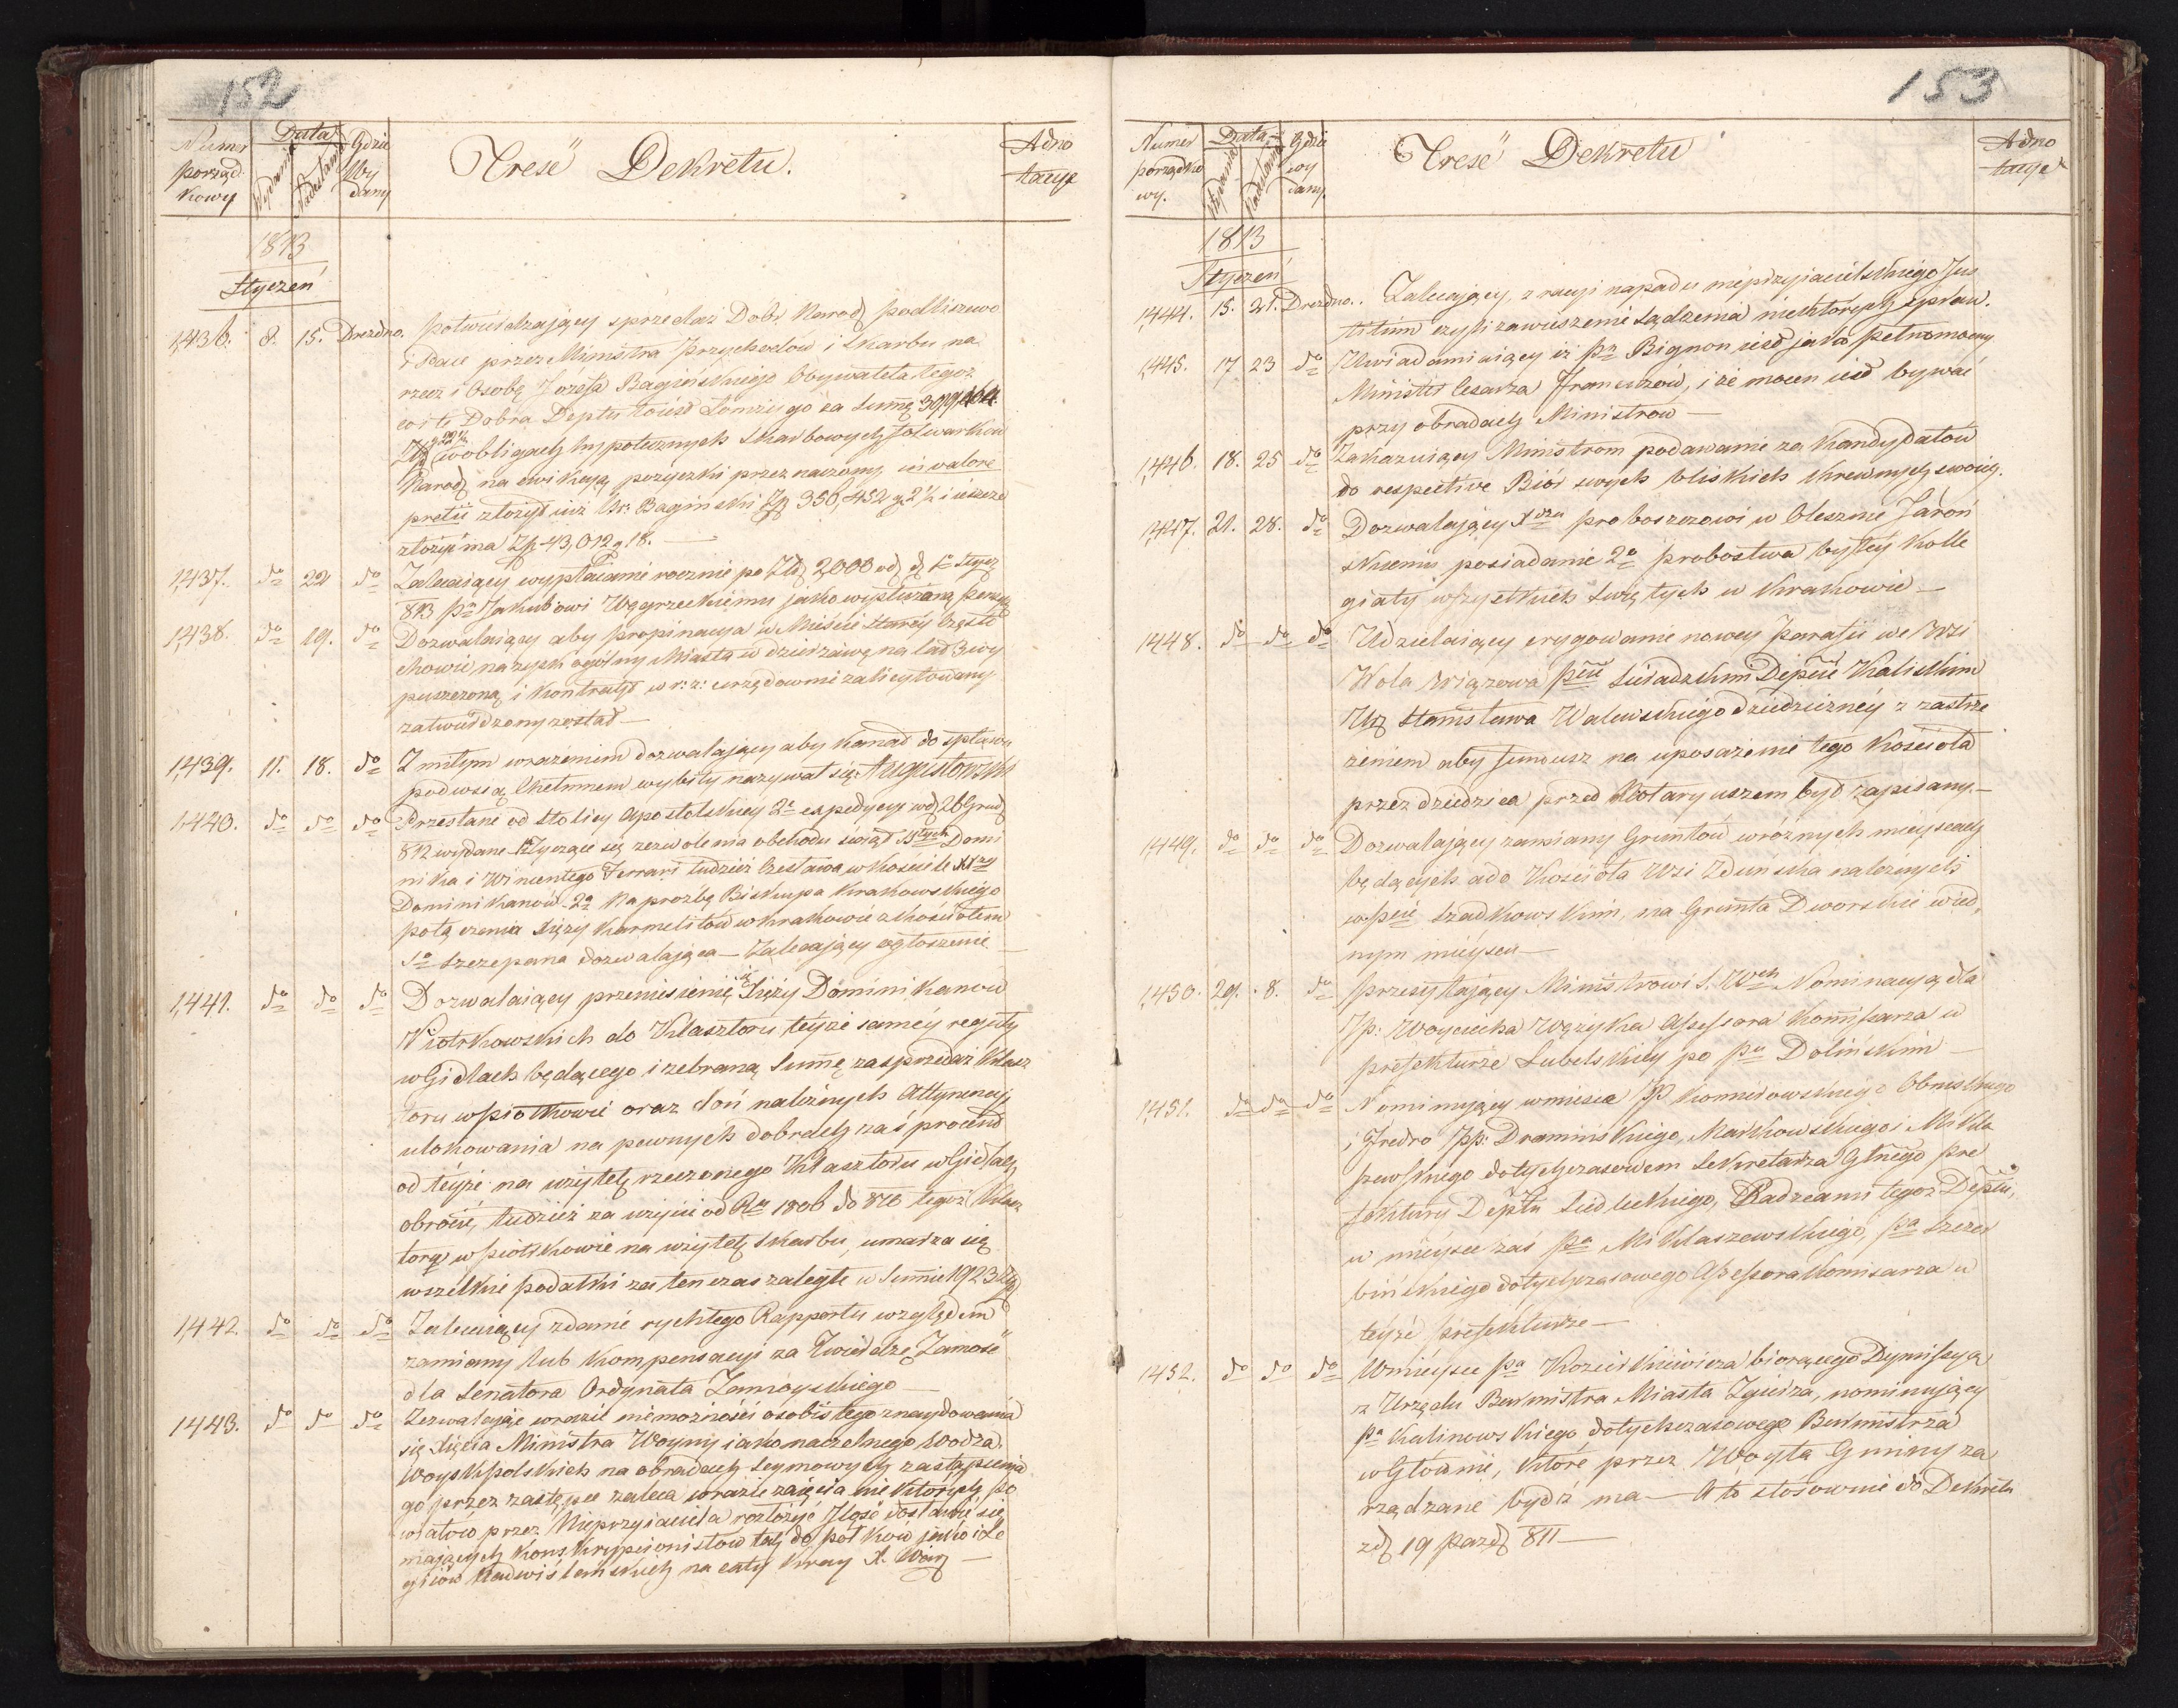 152
Numer porządkowy
Data
Wydania
Nadesłania
Gdzie Wydany
Treść Dekretu.
Adnotacye
1813
Styczeń
1,436. 8. 15. Drezdno. Potwierdzający sprzedaż Dóbr Narod Podliszewo
przez Ministra Przychodów i Skarbu na
rzecz i Osobę Józefa Bagińskiego Obywatela tegoż
Dobra Deptu Łomżyńgo za Summę
w obligach hypotecznych Skarbowych folwarków
Narod na ewikcyą pożyczki przeznaczony, in valore
pretii złożył już Ur: Bagiński Zp 356,452 g 2½ i ieszcze
złożyć ma Zp 43,012 g 18. —
1,437. do 22 do Zalecaiący wypłacanie rocznie po Złp 2,000 od d 1o Stycz
813 Pu Jakubowi Węgrzeckiemu jako wysłużoną pensyą
1,438. do 19. do Dozwalaiący aby propinacya w Mieście Starey Często
chowie, na zysk ogólny Miasta w dzierżawę na lat 3 wy
puszczoną i Kontrakt w r: z: urzędownie zalicytowany
zatwierdzony został —
1,439. 11. 18. do Z miłym wrażeniem dozwalający aby kanał do spławu
pod wsią Chełmnem wybity nazywał się Augustowski
1,440. do do do Przesłane od Stolicy Apostolskiey 2e expedycye w d 26 Grud
812 wydane 1o Tyczące się zezwolenia obchodu świąt SStych Domi
nika i Wincentego Ferrari tudzież Czesława w kościele XXzy
Dominikanów 2o Na prożbę Biskupa Krakowskiego
połączenia Xięży Karmelitów w Krakowie z Kościołem
So Szczepana dozwalająca — Zalecający ogłoszenie —
1,441. do do do Dozwalaiący przeniesienie się Xięży Dominikanów
Piotrkowskich do Klasztoru teyże saméy reguły
w Gidlach będącego i zebraną Summę za sprzedaż Klasz
toru w Piotrkowie oraz doń należnych Attynencyi
ulokowania na pewnych dobrach, zaś procent
od teyże na użytek rzeczonego Klasztoru w Gidlach
obrócić, tudzież za użycie od Ru 1806 do 810 tegoż Klasz
toru w Piotrkowie na użytek Skarbu, umarza się
wszelkie podatki za ten czas zaległe w Summie 1923 Złp
1,442. do do do Zalecaiący zdanie rychłego Rapportu względem
zamiany lub kompensacyi za Twierdzę Zamość
dla Senatora Ordynata Zamoyskiego —
1,443. do do do Zezwalające w razie niemożności osobistego znaydowania
się Xięcia Ministra Woyny iako naczelnego Wodza
Woysk Polskich na obradach Seymowych zastąpienia
go przez zastępce zaleca w razie zaięcia niektórych po
wiatów przez Nieprzyiaciela rozłożyć Ilość dostawić się
mających Konskrypcionistów tak do pułków jako i Le
gionów Nadwiślańskich na cały Kray X. Warz —
153
Numer porządkowy.
Data
Wydania
Nadesłania
Gdzie wydany.
Treść Dekretu
Adnotacye
1813
Styczeń
1,444. 15. 21. Drezdno. Zalecający, z racyi napadu nieprzyiacielskiego Jus
titium czyli zawieszenie sądzenia niektórych spraw.
1,445. 17 23 do Uwiadamiaiący iż Pn Bignon iest jako pełnomocny
Minister Cesarza Francuzów, i że mocen iest bywać
przy obradach Ministrów —
1,446. 18. 25 do Zakazuiący Ministrom podawanie za Kandydatów
do respective Biór swych bliskich krewnych swoich.
1,447. 21. 28. do Dozwalający Xdzu proboszczowi w Olesznie Jaroń
skiemu posiadanie 2o probostwa byłey Kolle
giaty wszystkich Świętych w Krakowie —
1448. do do do Udzielaiący erygowanie nowey Parafii we Wsi
Wola Wiązowa Pcie Sieradzkim Depcie Kaliskim
Ur Stanisława Walewskiego dziedziczney z zastrze
żeniem aby fundusz na uposażenie tego Kościoła
przez dziedzica przed Notaryuszem był zapisany. —
1,449. do do do Dozwalający zamiany Gruntów w różnych mieyscach
będących a do Kościoła Wsi Zduńska należnych
w Pcie Szadkowskim, na Grunta Dworskie w ied,
nym mieyscu —
1,450. 29. 8. do Przesyłający Ministrowi S. Wch Nominacyą dla
JP: Woyciecha Wężyka Assessora Kommissarza w
prefekturze Lubelskiey po Pu Dolińskim —
1,451. do do do Nominuyący w mieisca JP Komierowskiego Obniskiego
i Fredro PP: Dramińskiego, Markowskiego i Mikła
szewskiego dotychczasowem Sekretarza Głnego pre
fektury Deptu Siedleckiego, Radzcami tegoż Deptu,
w mieysce zaś Pa Mikłaszewskiego, Pa Szczer
bińskiego dotychczasowego Assessora Komisarza w
teyże prefekturze —
1452. do do do W mieysce Pa Kozierkiewicza biorącego Dymissyą
z Urzędu Burmistra Miasta Zgierza, nominujący
Pa Kalinowskiego dotychczasowego Burmistrza
w Głownie, które przez Woyta Gminy za
rządzane bydź ma — A to stósownie do Dekretu
z d 19 Pazd 811 —